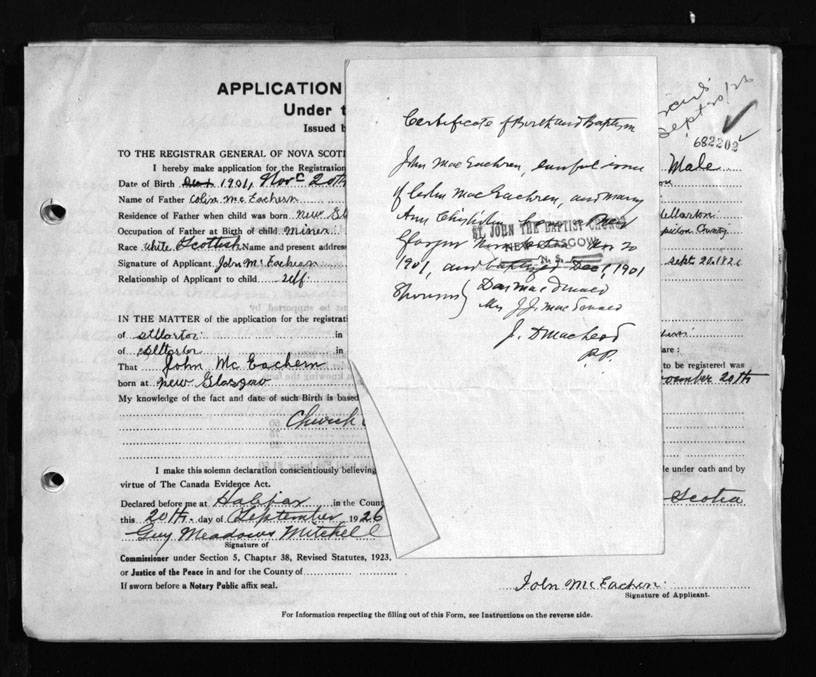 APPLICATION
Under t
Issued b
TO THE REGISTRAR GENERAL OF NOVA SCOTI
I hereby make application for the Registration
Date of Birth 1901, Novr 20th
Name of Father Colin Mc Eachern
Residence of Father when child was born New Gl
Occupation of Father at Birth of child Miner
Race White Scottish Name and present address
Signature of Applicant John Mc Eachern
Relationship of Applicant to child self
IN THE MATTER of the application for the registrati
of Stellarton in
of Stellarton in
That John Mc Eachern
born at New Glasgow
My knowledge of the fact and date of such Birth is based
Church
I make this solemn declaration conscientiously believing
virtue of The Canada Evidence Act.
Declared before me at Halifax in the Coun
this 20th day of September 1926
Guy Meadows Mitchell
Signature of
Commissioner under Section 5, Chapter 38, Revised Statutes, 1923,
or Justice of the Peace in and for the County of
If sworn before a Notary Public affix seal.
For Information respecting the filling out of this Form, see Instructions on the reverse side.
Certificate of Birth and Baptism
John MacEachren, lawful son
of Colin MacEachren, and Mary
Ann Chisholm
ST. JOHN THE BAPTIST CHURCH
NEW GLASGOW
N. S.
Glasgow Nov 20
1901, and baptized Dec 1, 1901
Sponsors } Dan MacDonald
Mrs J. J. MacDonald
J. D MacLeod
P.P.
Sept 20/26
682202
Male
Stellarton
Pictou County
Sept 20. 1926
are :
to be registered was
ovember 20th
le under oath and by
Scotia
John Mc Eachern
Signature of Applicant.